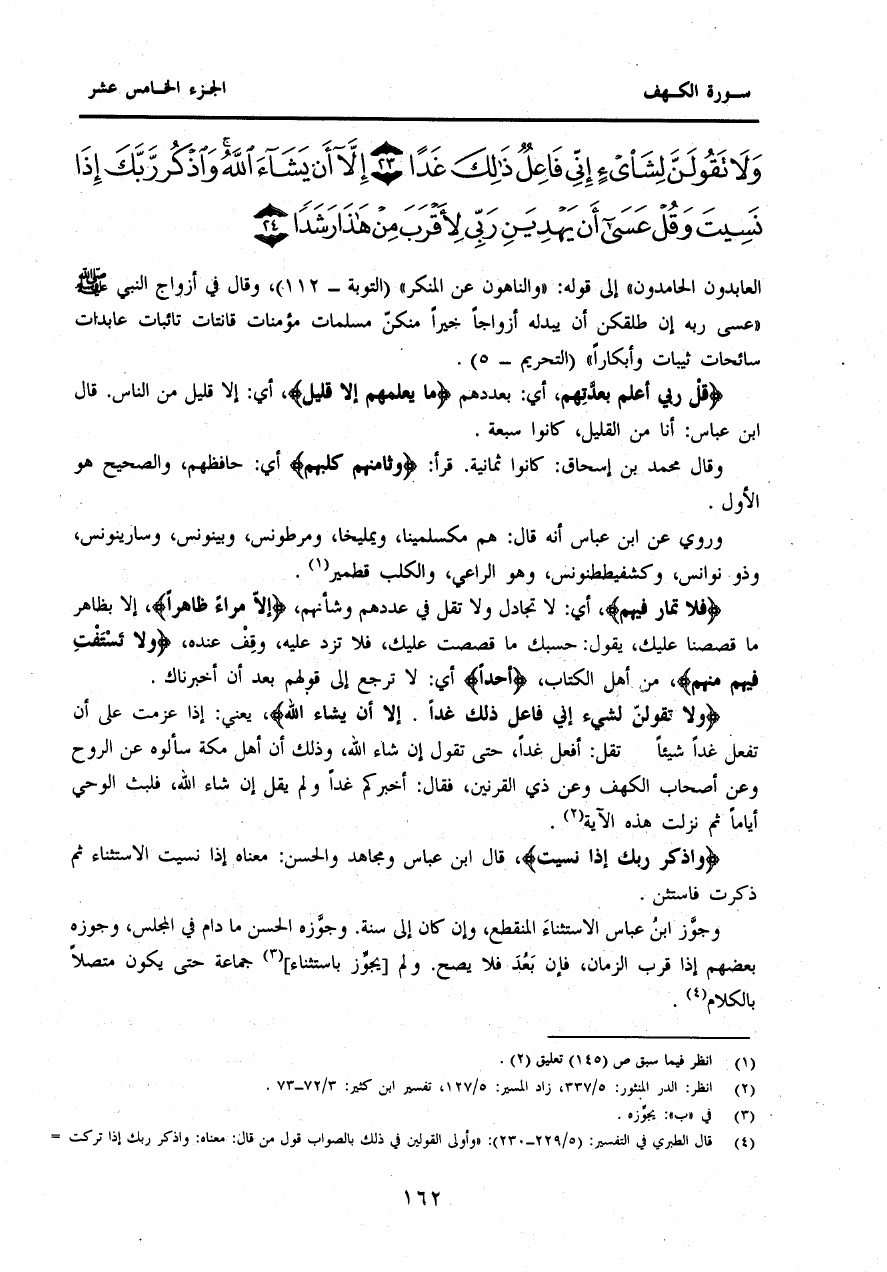 سورة الكهف
الجزء الخامس عشر
وَلَا تَقُولَنَّ لِشَاْىْءٍ إِنِّي فَاعِلٌ ذَٰلِكَ غَدًا ٢٣ إِلَّآ أَن يَشَآءَ ٱللَّهُ ۚ وَٱذْكُر رَّبَّكَ إِذَا
نَسِيتَ وَقُلْ عَسَىٰٓ أَن يَهْدِيَنِ رَبِّي لِأَقْرَبَ مِنْ هَٰذَا رَشَدًا ٢٤
العابدون الحامدون» إلى قوله: «والناهون عن المنكر» (التوبة – ١١٢)، وقال في أزواج النبي ﷺ
«عسى ربه إن طلقكن أن يبدله أزواجاً خيراً منكنّ مسلمات مؤمنات قانتات تائبات عابدات
سائحات ثيبات وأبكاراً» (التحريم – ٥) .
﴿قلْ ربي أعلم بعدَّتِهم، أي: بعددهم ﴿ما يعلمهم إلا قليل﴾، أي: إلا قليل من الناس. قال
ابن عباس: أنا من القليل، كانوا سبعة .
وقال محمد بن إسحاق: كانوا ثمانية. قرأ: ﴿وثامنهم كلبهم﴾ أي: حافظهم، والصحيح هو
الأول .
وروي عن ابن عباس أنه قال: هم مكسلمينا، ويمليخا، ومرطونس، وبينونس، وسارينونس،
وذو نوانس، وكشفيططنونس، وهو الراعي، والكلب قطمير(١) .
﴿فلا تمار فيهم﴾، أي: لا تجادل ولا تقل في عددهم وشأنهم، ﴿إلاّ مراءً ظاهراً﴾، إلا بظاهر
ما قصصنا عليك، يقول: حسبك ما قصصت عليك، فلا تزد عليه، وقِفْ عنده، ﴿ولا تَسْتَفْتِ
فيهم منهم﴾، من أهل الكتاب، ﴿أحداً﴾ أي: لا ترجع إلى قولهم بعد أن أخبرناك .
﴿ولا تقولنّ لشيء إني فاعل ذلك غداً . إلا أن يشاء الله﴾، يعني: إذا عزمت على أن
تفعل غداً شيئاً تقل: أفعل غداً، حتى تقول إن شاء الله، وذلك أن أهل مكة سألوه عن الروح
وعن أصحاب الكهف وعن ذي القرنين، فقال: أخبركم غداً ولم يقل إن شاء الله، فلبث الوحي
أياماً ثم نزلت هذه الآية(٢) .
﴿واذكر ربك إذا نسيت﴾، قال ابن عباس ومجاهد والحسن: معناه إذا نسيت الاستثناء ثم
ذكرت فاستثن .
وجوَّز ابنُ عباس الاستثناءَ المنقطع، وإن كان إلى سنة. وجوَّزه الحسن ما دام في المجلس، وجوزه
بعضهم إذا قرب الزمان، فإن بَعُدَ فلا يصح. ولم [يجوِّز باستثناء](٣) جماعة حتى يكون متصلاً
بالكلام(٤) .
(١) انظر فيما سبق ص (١٤٥) تعليق (٢) .
(٢) انظر: الدر المنثور: ٣٣٧/٥، زاد المسير: ١٢٧/٥، تفسير ابن كثير: ٧٢/٣–٧٣ .
(٣) في «ب»: يجوِّزه .
(٤) قال الطبري في التفسير: (٢٢٩/٥–٢٣٠): «وأولى القولين في ذلك بالصواب قول من قال: معناه: واذكر ربك إذا تركت =
١٦٢